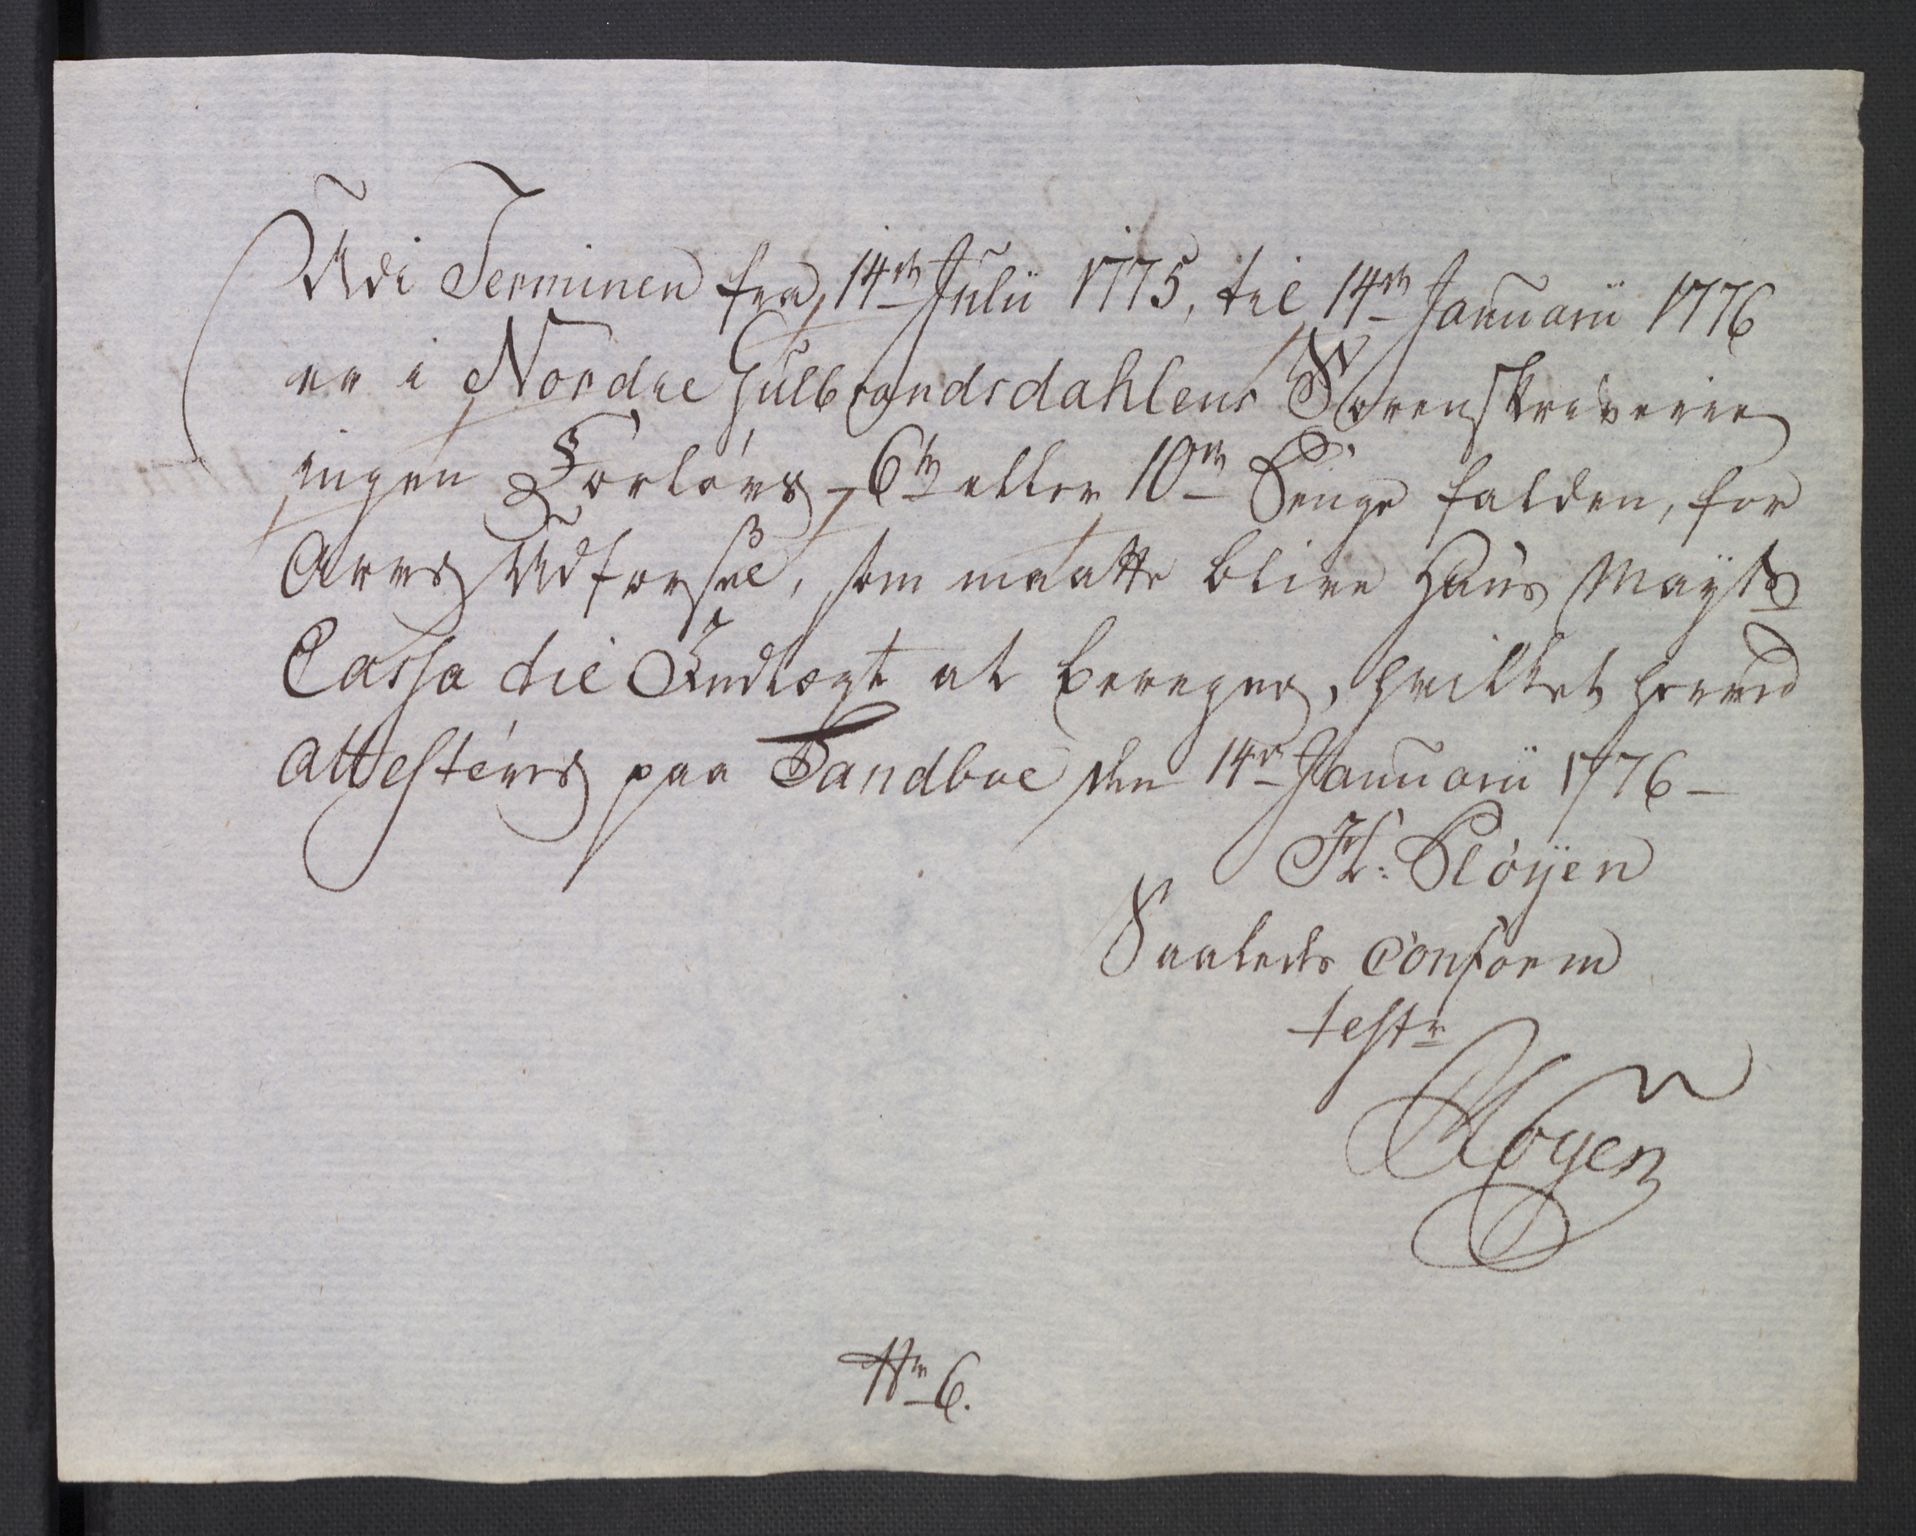 Udi Terminen fra 14de Julii 1775, til 14de Januarii 1776
er i Nordre Gulbrandsdahlens Sorenskriverie
ingen Forlovs, 6te eller 10de Penge falden, for
Arvs Udførsel, som maatte blive Hans Mayts
Cassa til Indtægt at beregne, hvilket herved
Attesteres paa Sandboe den 14de Januarii 1776
H: Pløyen
Saaledes Conform
test:
Pløyen
No 6.